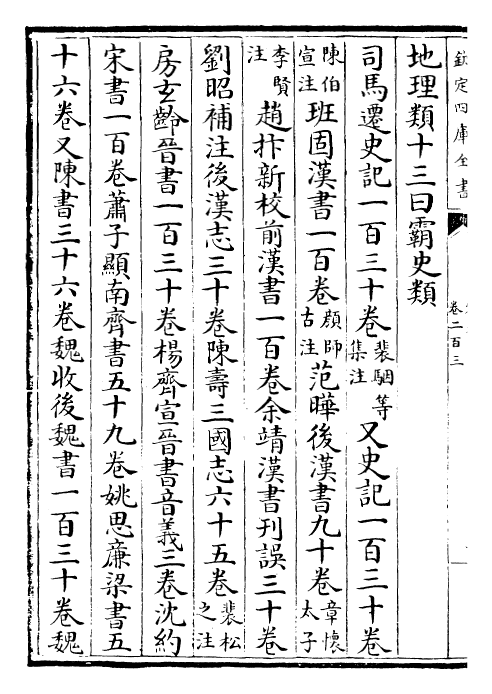 欽定四庫全書
卷二百三
地理類十三曰霸史類
司馬遷史記一百三十卷裴駰等集注又史記一百三十卷
陳伯宣注班固漢書一百卷顔師古注范曄後漢書九十卷章懷太子
李賢注趙抃新校前漢書一百卷余靖漢書刊誤三十卷
劉昭補注後漢志三十卷陳壽三國志六十五卷裴松之注
房玄齡晉書一百三十卷楊齊宣晉書音義三卷沈約
宋書一百卷蕭子顯南齊書五十九卷姚思廉梁書五
十六卷又陳書三十六卷魏收後魏書一百三十卷魏